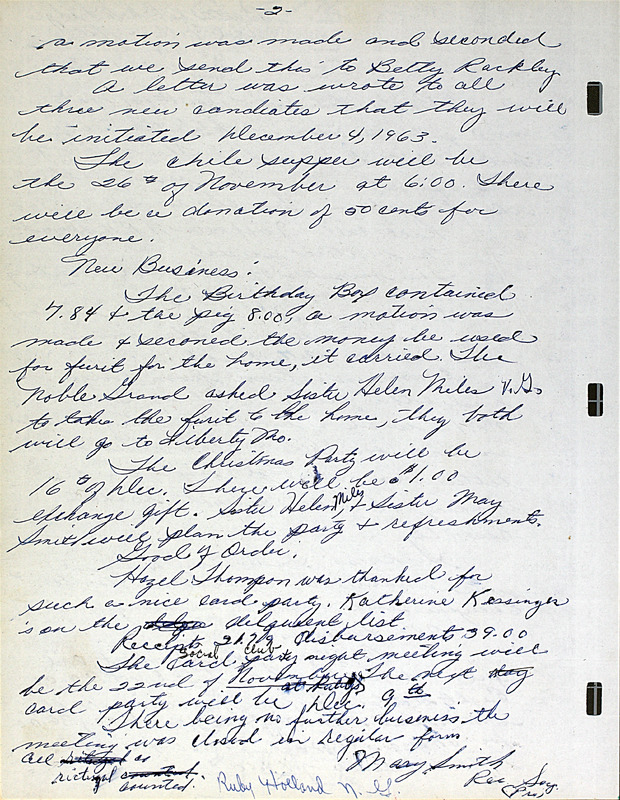 -2-
a motion was made and seconded
that we send this to Betty Rackley
A letter was wrote to all
three new candiates that they will
be initiated December 4, 1963.
The chile supper will be
the 26th of November at 6:00. There
will be a donation of 50 cents for
everyone.
New Business:
The Birthday Box contained
7.84 & the pig 8.00, a motion was
made & seconed the money be used
for furit for the home, it carried. The
Noble Grand asked Sister Helen Miles V.G.
to take the furit to the home, they both
will go to Liberty Mo.
The Christmas Party will be
16th of Dec. There will be a $1.00
exchange gift. Sister Helen Miles & Sister May
Smith will plan the party & refreshments.
Good of Order.
Hazel Thompson was thanked for
such a nice card party. Katherine Kessinger
is on the delquent list.
Receipts 21.79 Disbursements 39.00
Social Club
The Card party night meeting will
be the 22nd of November at Hubbs The next
card party will be Dec. 9th
There being no further business the
meeting was closed in regular form
all as
rictual counted.
Mary Smith
Rec Sey.
Pro
Ruby Holland N. G.